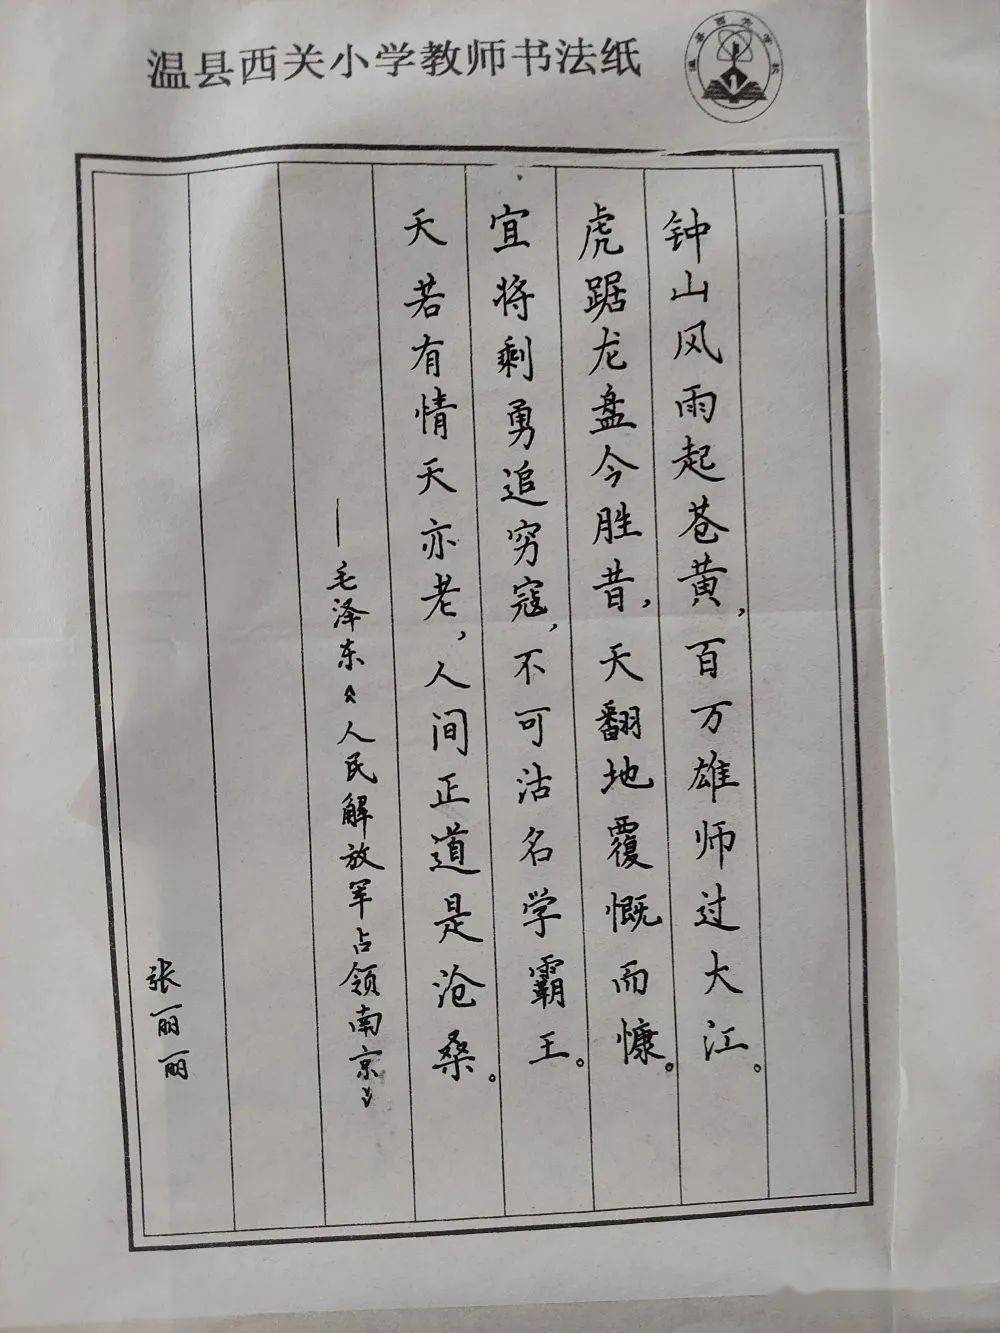 温县西关小学教师书法纸
钟山风雨起苍黄，百万雄师过大江。
虎踞龙盘今胜昔，天翻地覆慨而慷。
宜将剩勇追穷寇，不可沽名学霸王。
天若有情天亦老，人间正道是沧桑。
——毛泽东《人民解放军占领南京》
张丽丽